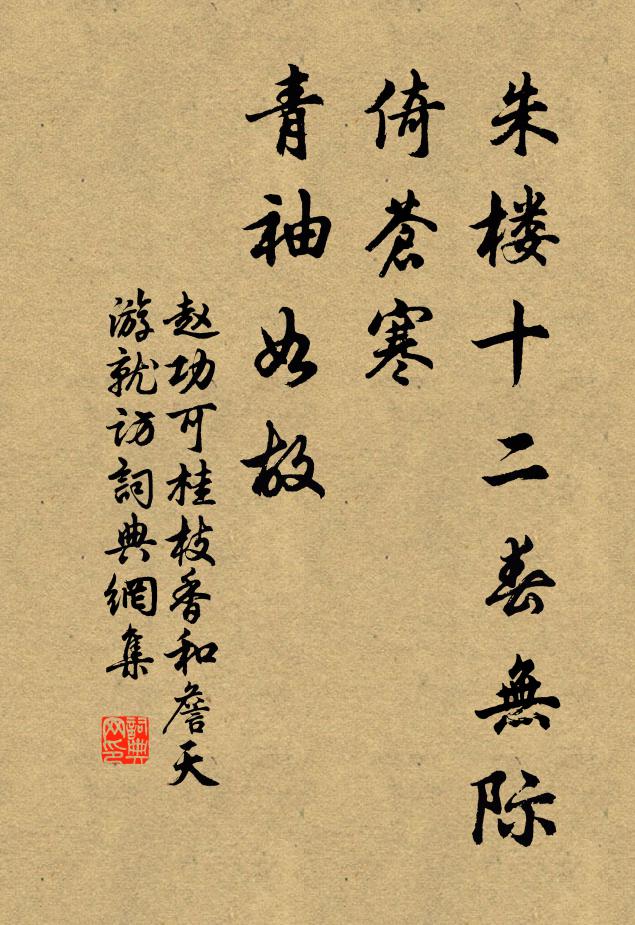 朱楼十二春無际
倚蒼寒
青袖如故
赵功可桂枝香和詹天
游就访詞典網集
詞典网印